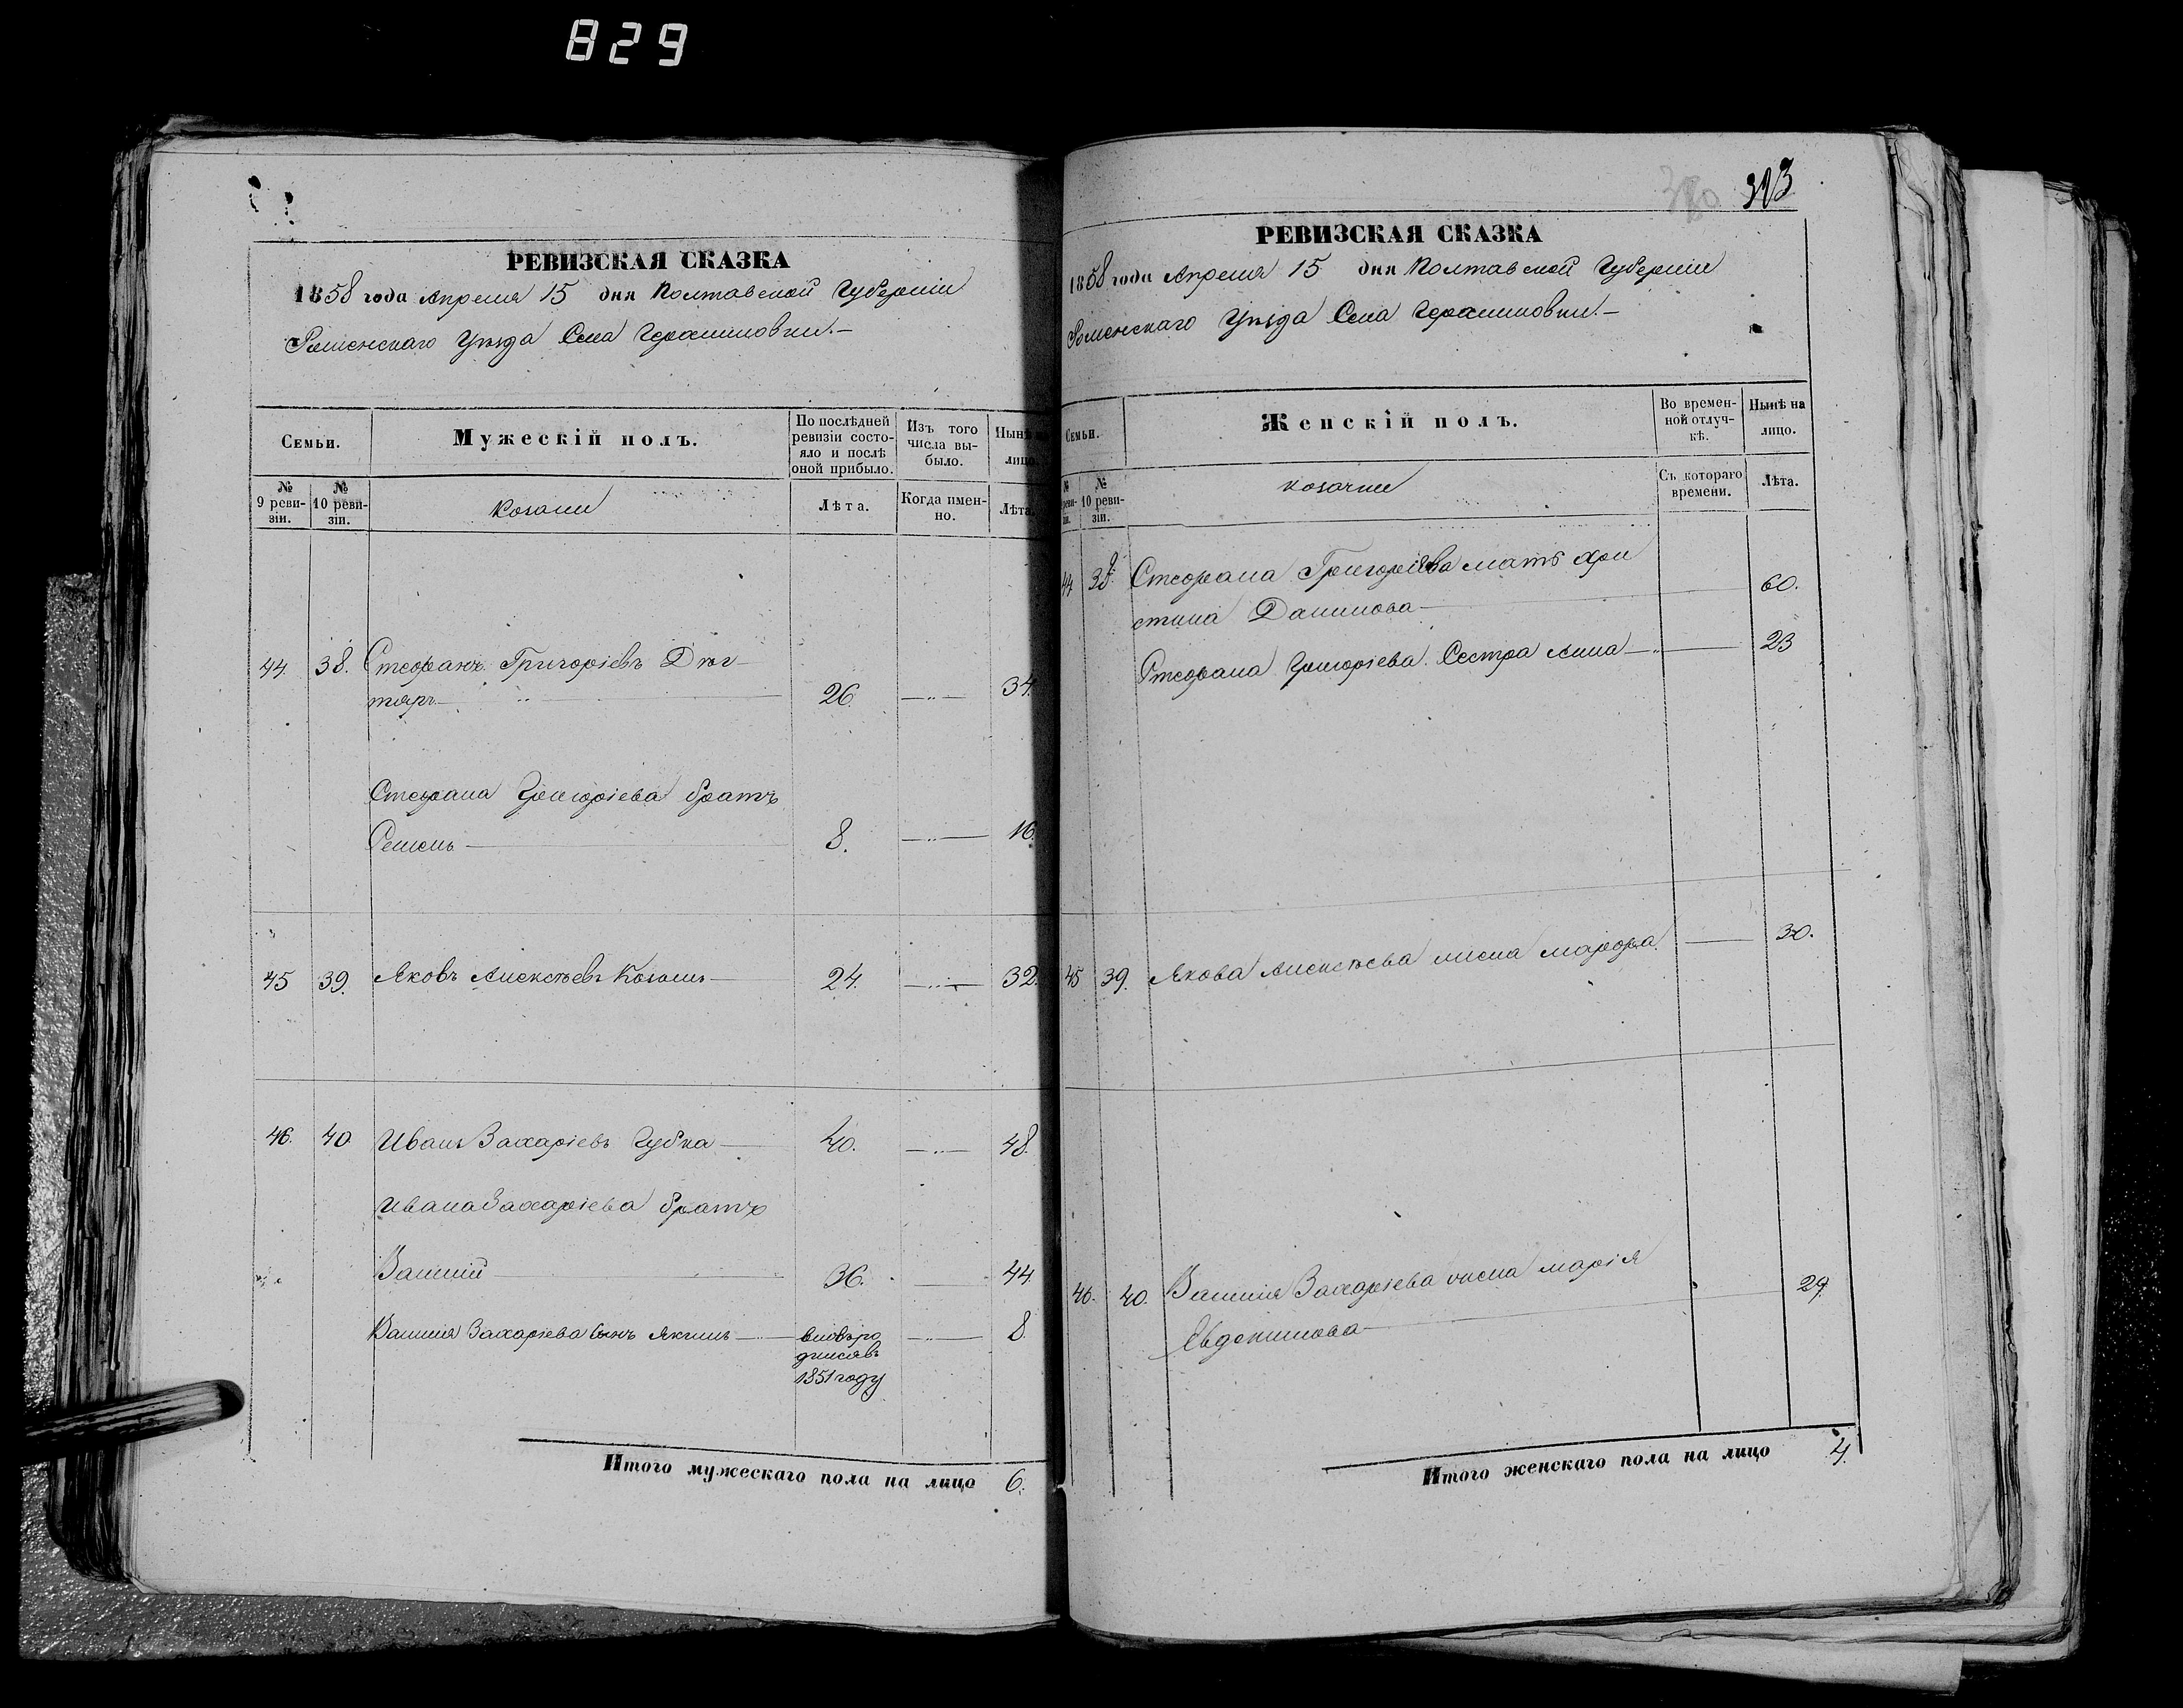 829
РЕВИЗСКАЯ СКАЗКА
1858 года Апреля 15 дня Полтавской Губерніи
Роменскаго Уѣзда Села Герасимовки.—
Семьи.
Мужескій полъ.
По послѣдней ревизіи состояло и послѣ оной прибыло.
Изъ того числа выбыло.
Нынѣ на лицо.
№ 9 ревизіи.
№ 10 ревизіи.
Козаки
Лѣта.
Когда именно.
Лѣта.
44. 38. Стефанъ Григоріевъ Дюг
тяръ 26. 34.
Стефана Григоріева братъ
Семенъ 8. 16.
45 39. Яковъ Алексѣевъ 24. 32.
46. 40 Иванъ Захаріевъ Губка 40. 48.
Ивана Захаріева братъ
Василій 36. 44
Василія Захаріева сынъ Якимъ вновь ро 8.
дился въ
1851 году
Итого мужескаго пола на лицо 6.
380 313
РЕВИЗСКАЯ СКАЗКА
1858 года Апреля 15 дня Полтавской Губерніи
Роменскаго Уѣзда Села Герасимовки.—
Семьи.
Женскій полъ.
Во временной отлучкѣ.
Нынѣ на лицо.
№ ревизіи.
№ 10 ревизіи.
Козачки
Съ котораго времени.
Лѣта.
44 38. Стефана Григоріева мать Хри
стина Данилова 60.
Стефана Григоріева Сестра Анна 23
45 39. Якова Алексѣева жена Марфа 30.
46. 40. Василія Захаріева жена Марія 29
Евдокимова
Итого женскаго пола на лицо 4.